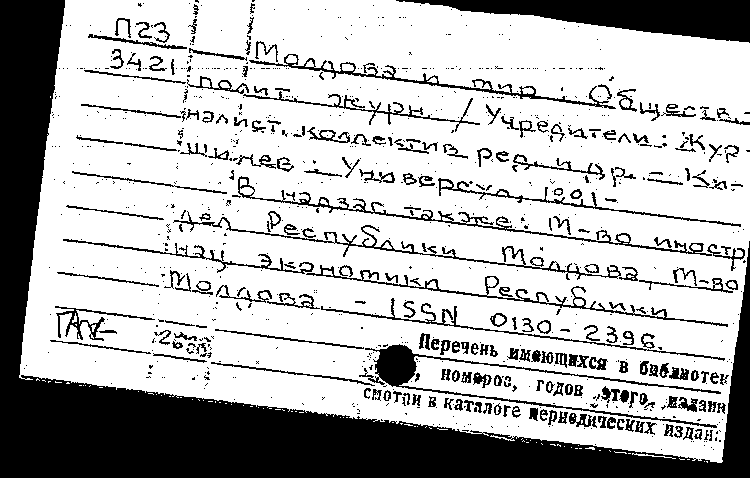 П23
3421
Молдова и мир : Обществ.-
полит. журн. / Учредители: Жур-
налист. коллектив ред. и др. – Ки-
шинев : Универсул, 1991-
В надзаг. также: М-во иностр.
дел Республики Молдова, М-во
нац. экономики Республики
Молдова. – ISSN 0130-2396.
Перечень имеющихся в библиотек
, номеров, годов этого издани
смотри в каталоге периодических издан